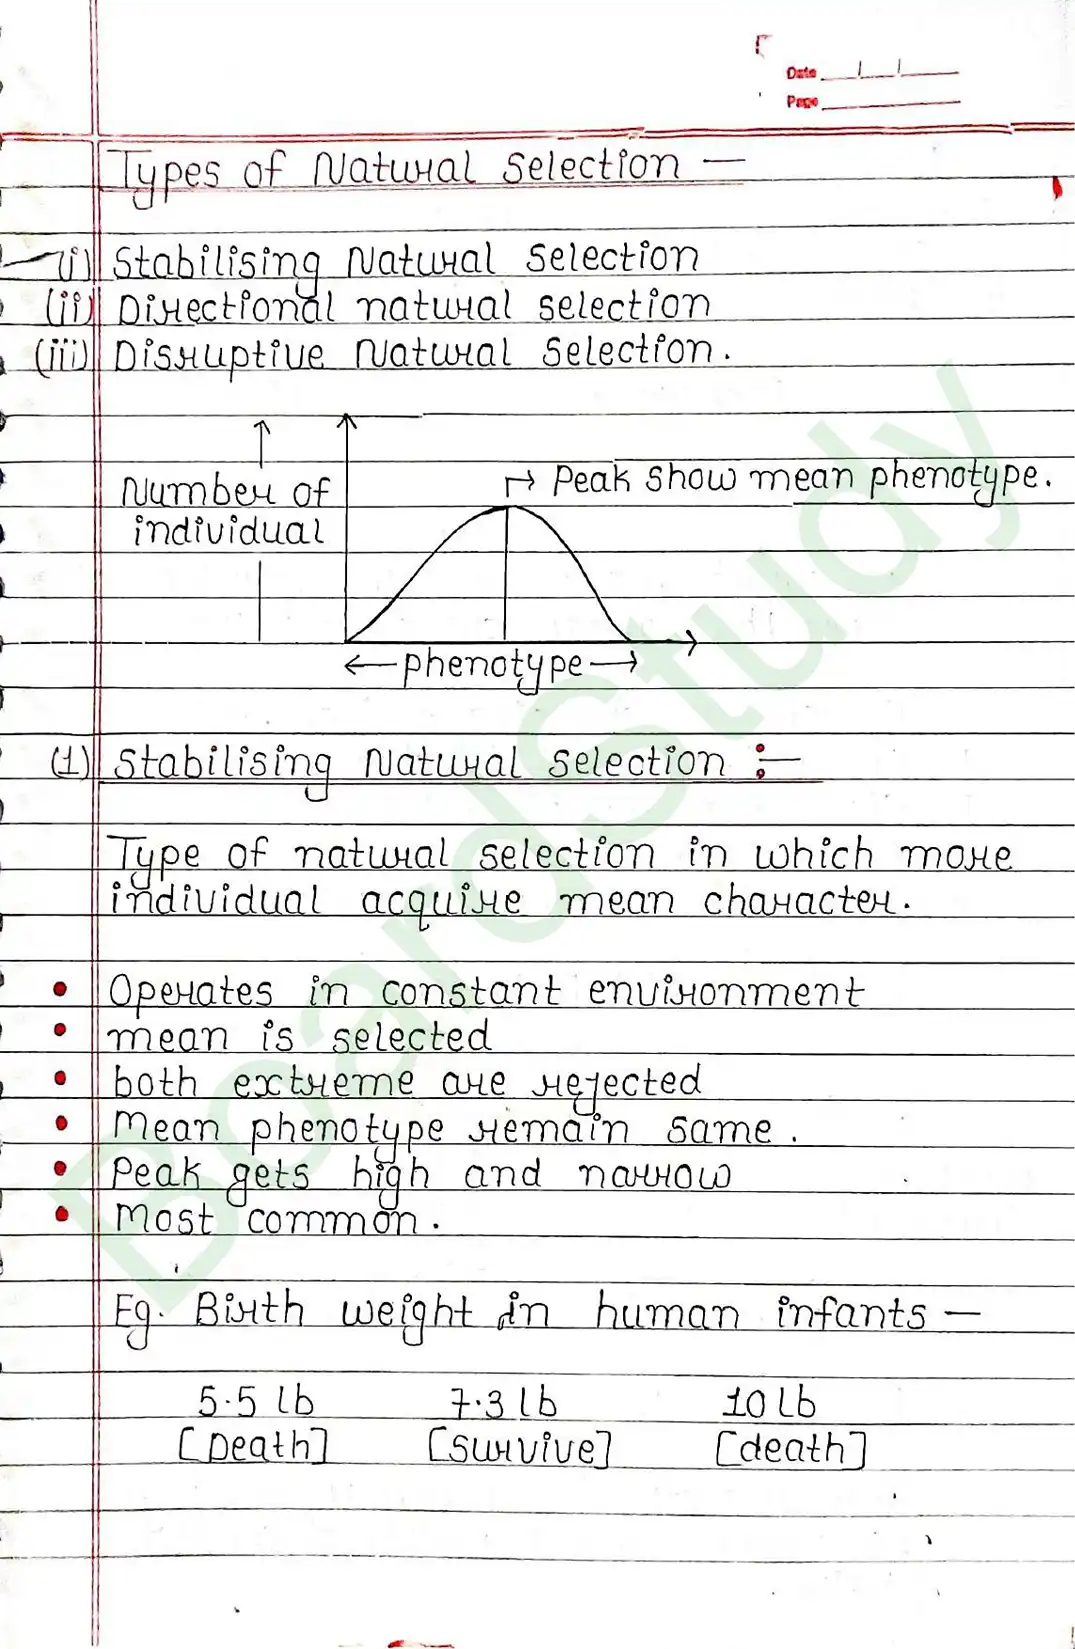 Date
Page
Types of Natural Selection —
(i) Stabilising Natural Selection
(ii) Directional natural selection
(iii) Disruptive Natural Selection.
Number of individual
Peak show mean phenotype.
phenotype
(1) Stabilising Natural Selection :—
Type of natural selection in which more
individual acquire mean character.
• Operates in constant environment
• mean is selected
• both extreme are rejected
• Mean phenotype remain same.
• Peak gets high and narrow
• Most common.
Eg. Birth weight in human infants —
5.5 lb 7.3 lb 10 lb
[Death] [Survive] [death]
BoardStudy